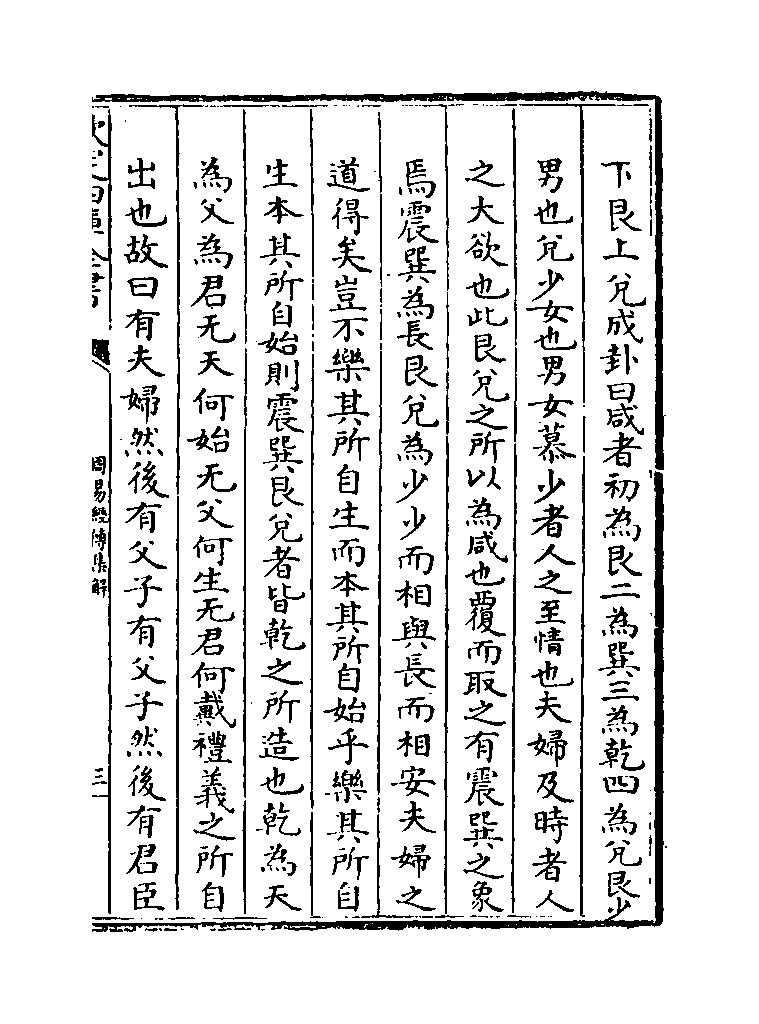 下艮上兌成卦曰咸者初為艮二為巽三為乾四為兌艮少
男也兌少女也男女慕少者人之至情也夫婦及時者人
之大欲也此艮兌之所以為咸也覆而取之有震巽之象
焉震巽為長艮兌為少少而相與長而相安夫婦之
道得矣豈不樂其所自生而本其所自始乎樂其所自
生本其所自始則震巽艮兌者皆乾之所造也乾為天
為父為君无天何始无父何生无君何戴禮義之所自
出也故曰有夫婦然後有父子有父子然後有君臣
欽定四庫全書
周易經傳集解
三